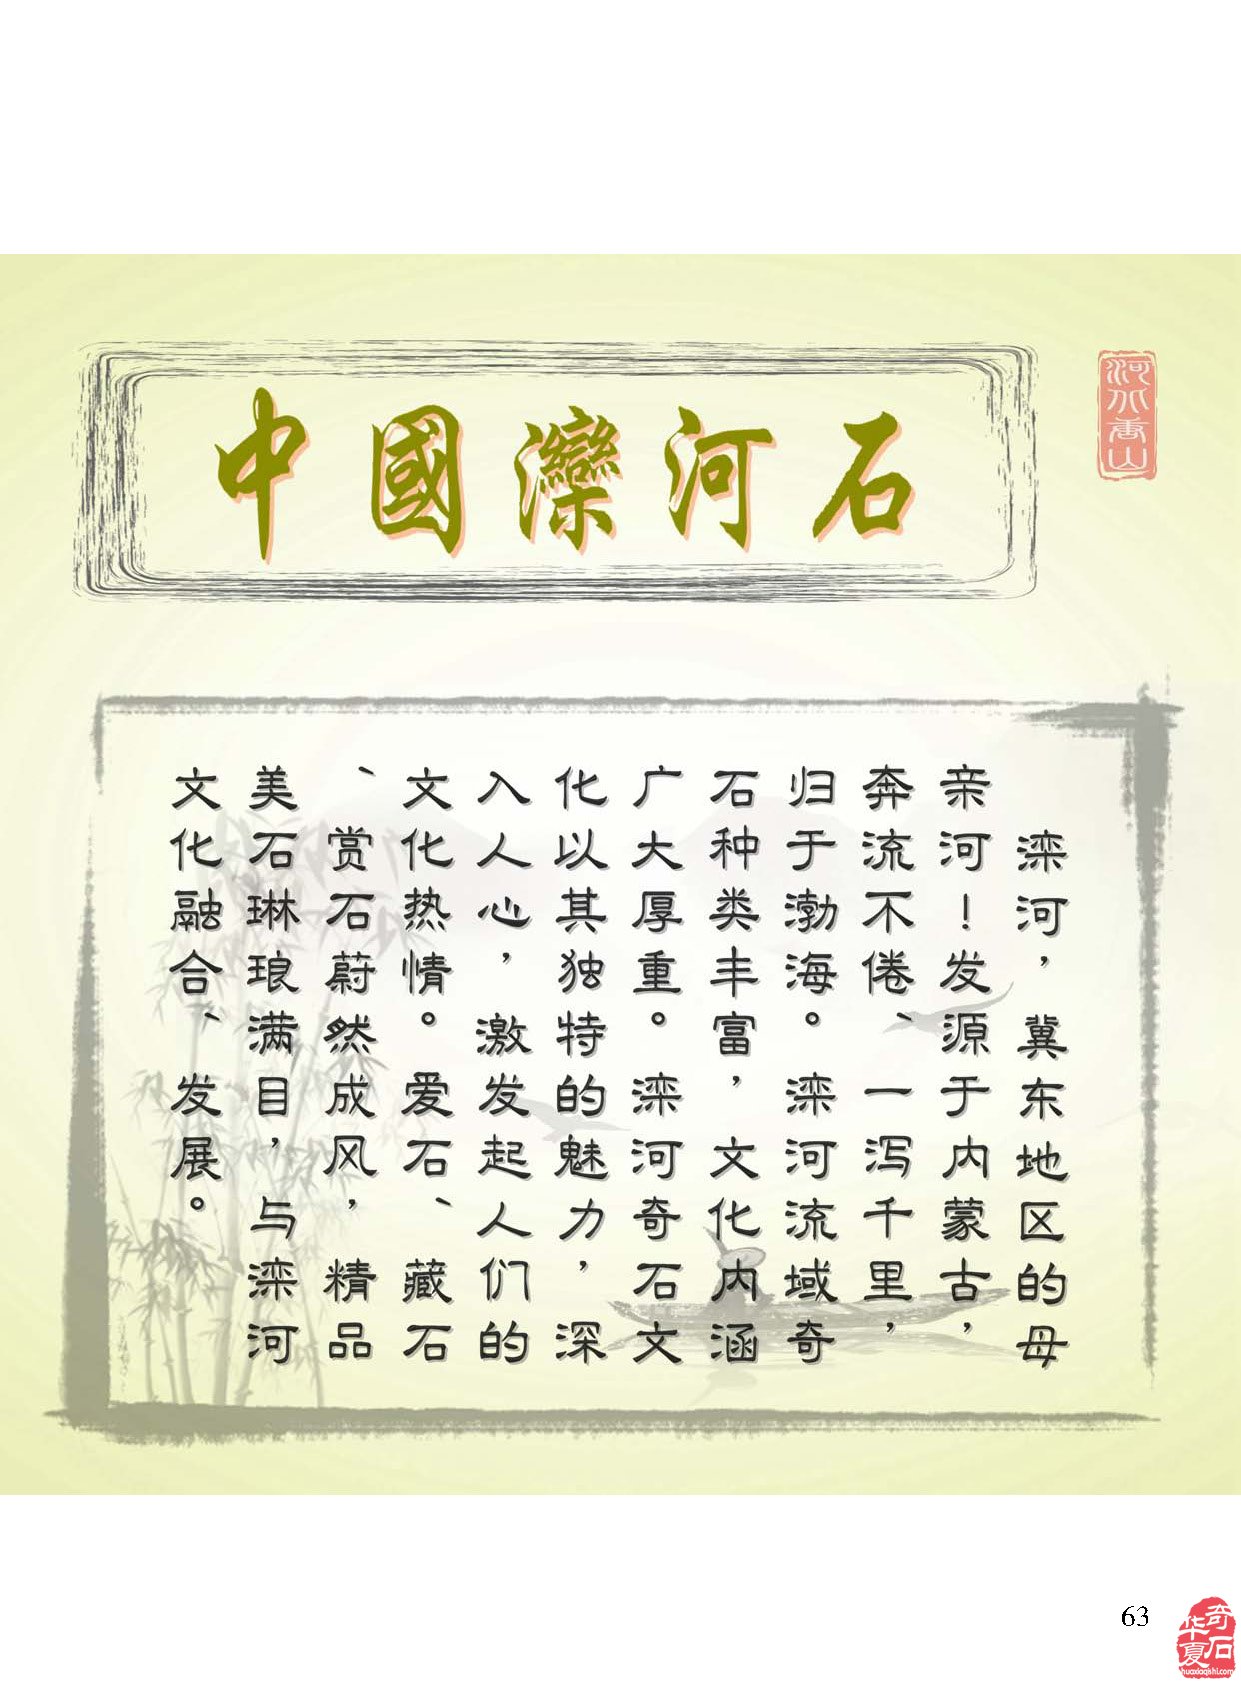 中國灤河石
滦河，冀东地区的母
亲河！发源于内蒙古，
奔流不倦、一泻千里，
归于渤海。滦河流域奇
石种类丰富，文化内涵
广大厚重。滦河奇石文
化以其独特的魅力，深
入人心，激发起人们的
文化热情。爱石、藏石
、赏石蔚然成风，精品
美石琳琅满目，与滦河
文化融合、发展。
63
华夏奇石
huaxiaqishi.com